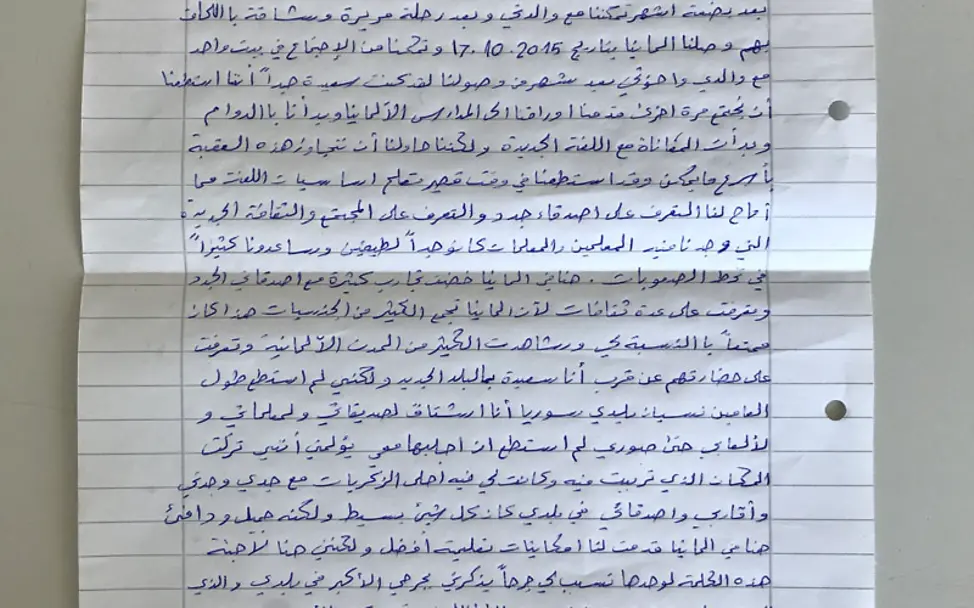 بعد بضعة اشهر تمكننا مع والدتي و بعد رحلة مريرة وشاقة با اللحاق
بهم وصلنا المانيا بتاريخ 17.10.2015 و تمكنا من الإجتماع في بيت واحد
مع والدي واخوتي بعد شهر من وصولنا لقد كنت سعيدة جداً أننا استطعنا
أن نجتمع مرة اخرى قدمنا اوراقنا الى المدارس الألمانيا وبدأنا با الدوام
وبدأت المعاناة مع اللغة الجديدة ولكننا حاولنا أن نتجاوز هذه العقبة
بأسرع ما يمكن وقد استطعنا في وقت قصير تعلم اساسيات اللغة مما
أتاح لنا التعرف على اصدقاء جدد و التعرف على المجتمع والثقافة الجديدة
التي وجدنا فيه المعلمين والمعلمات كانو جداً لطيفين وساعدونا كثيراً
في تخط الصعوبات . هنا في المانيا خضت تجارب كثيرة مع اصدقائي الجدد
وتعرفت على عدة ثقافات لأن المانيا تجمع الكثير من الجنسيات هذا كان
ممتعاً با النسبة لي وشاهدت الكثير من المدن الألمانية وتعرفت
على حضارتهم عن قرب أنا سعيدة بالبلد الجديد ولكنني لم استطع طول
العامين نسيان بلدي سوريا أنا اشتاق لصديقاتي ولمعلماتي و
لألعابي حتى صوري لم استطع ان اجلبها معي يؤلمني أنني تركت
المكان الذي تربيت فيه وكانت لي فيه احلى الذكريات مع جدي وجدتي
وأقاربي واصدقائي في بلدي كان كل شيئ بسيط ولكنه جميل و دافئ
هنا في المانيا قدمت لنا امكانيات تعليمية أفضل ولكنني هنا لاجئة
هذه الكلمة لوحدها تسبب لي جرحاً يذكرني بجرحي الأكبر في بلدي والذي